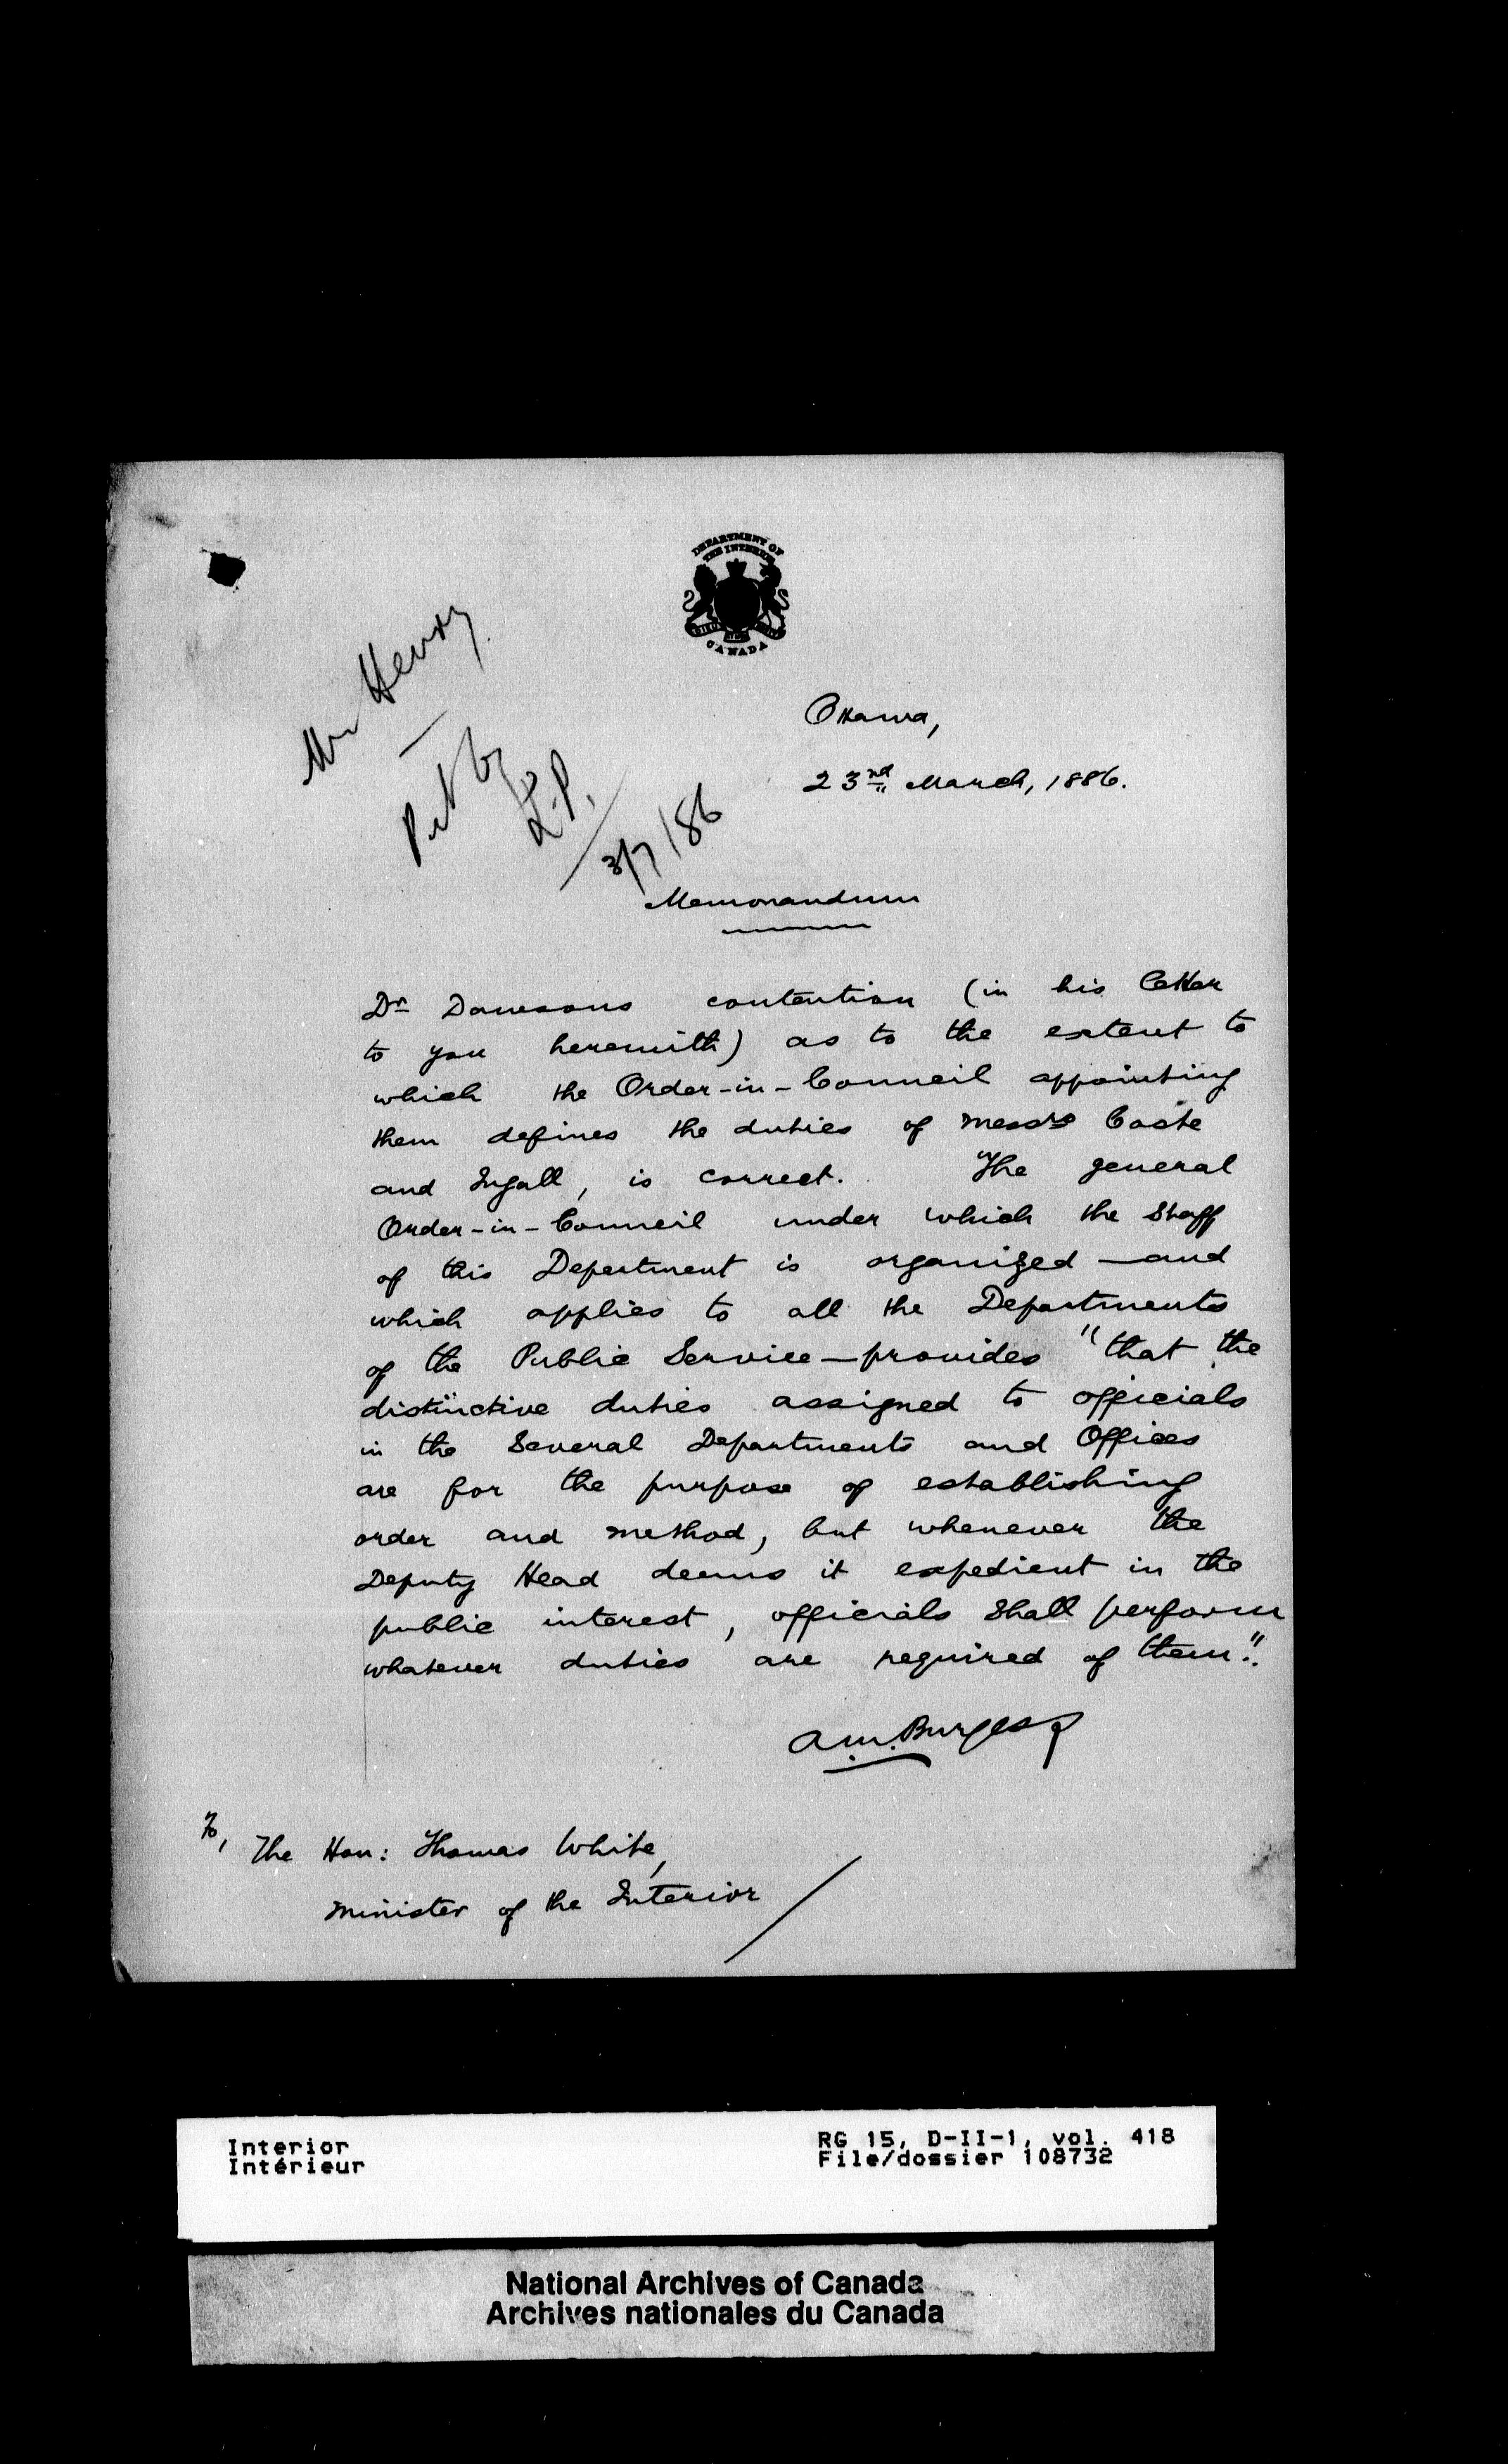 DEPARTMENT OF
THE INTERIOR
CANADA
Mr Henry
L.P.
3/7/86
Ottawa,
23rd March, 1886.
Memorandum
Dr Dawsons contention (in his letter
to you herewith) as to the extent to
which the Order-in-Council appointing
them defines the duties of Messrs Coste
and Ingall, is correct. The general
Order-in-Council under which the Staff
of this Department is organized—and
which applies to all the Departments
of the Public Service—provides "that the
distinctive duties assigned to officials
in the Several Departments and Offices
are for the purpose of establishing
order and method, but whenever the
Deputy Head deems it expedient in the
public interest, officials Shall perform
whatever duties are required of them".
A.M. Burgess
To,
The Hon: Thomas White,
Minister of the Interior
Interior
Intérieur
RG 15, D-II-1, vol. 418
File/dossier 108732
National Archives of Canada
Archives nationales du Canada